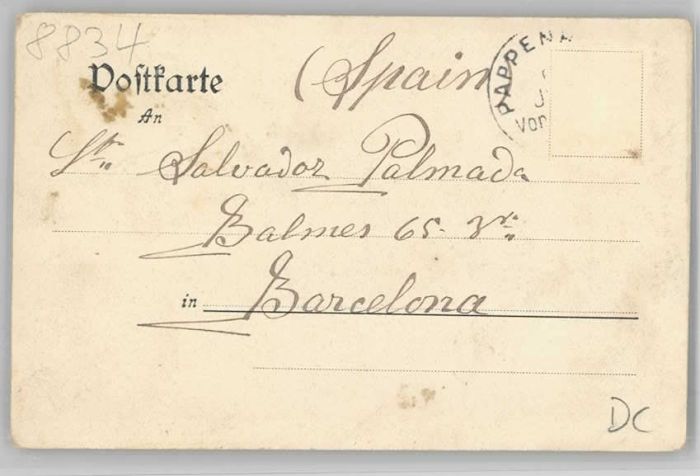 8834
Postkarte
(Spain
PAPPENH
An
Sr. Salvador Palmada
Balmes 65
in Barcelona
DC